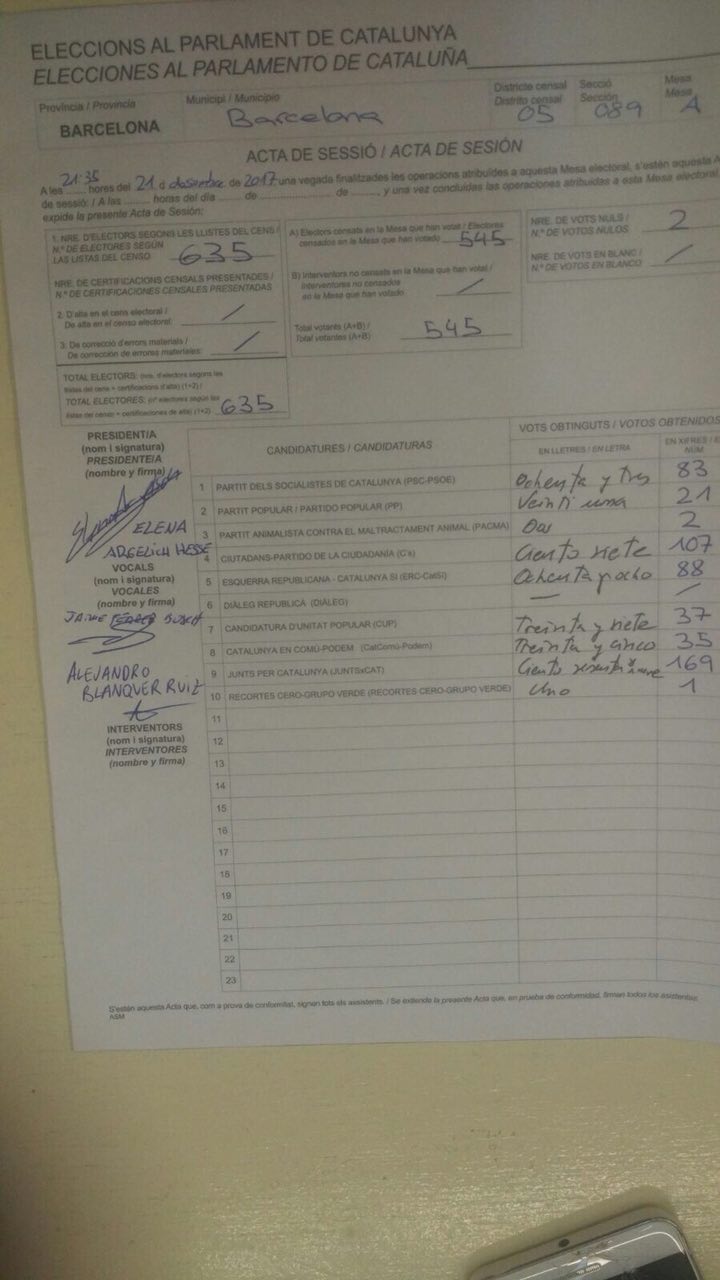 ELECCIONS AL PARLAMENT DE CATALUNYA
ELECCIONES AL PARLAMENTO DE CATALUÑA
Província / Provincia
BARCELONA
Municipi / Municipio
Barcelona
Districte censal
Distrito censal
05
Secció
Sección
089
Mesa
Mesa
A
ACTA DE SESSIÓ / ACTA DE SESIÓN
A les 21:35 hores del 21 d desembre de 2017 una vegada finalitzades les operacions atribuïdes a aquesta Mesa electoral, s'estén aquesta A
de sessió: / A las ......... horas del día ..... de ........................ de ........, y una vez concluidas las operaciones atribuidas a esta Mesa electoral,
expide la presente Acta de Sesión:
1. NRE. D'ELECTORS SEGONS LES LLISTES DEL CENS /
N.º DE ELECTORES SEGÚN
LAS LISTAS DEL CENSO
635
NRE. DE CERTIFICACIONS CENSALS PRESENTADES /
N.º DE CERTIFICACIONES CENSALES PRESENTADAS
2. D'alta en el cens electoral /
De alta en el censo electoral: /
3. De correcció d'errors materials /
De corrección de errores materiales: /
TOTAL ELECTORS: (nre. d'electors segons les
llistes del cens + certificacions d'alta) (1+2) /
TOTAL ELECTORES: (nº electores según las
listas del censo + certificaciones de alta) (1+2) 635
A) Electors censats en la Mesa que han votat / Electores
censados en la Mesa que han votado 545
B) Interventors no censats en la Mesa que han votat /
Interventores no censados
en la Mesa que han votado /
Total votants (A+B) /
Total votantes (A+B) 545
NRE. DE VOTS NULS /
N.º DE VOTOS NULOS 2
NRE. DE VOTS EN BLANC /
N.º DE VOTOS EN BLANCO /
PRESIDENT/A
(nom i signatura)
PRESIDENTE/A
(nombre y firma)
ELENA
ARGELICH HESSE
VOCALS
(nom i signatura)
VOCALES
(nombre y firma)
JAIME
ALEJANDRO
BLANQUER RUIZ
INTERVENTORS
(nom i signatura)
INTERVENTORES
(nombre y firma)
CANDIDATURES / CANDIDATURAS
VOTS OBTINGUTS / VOTOS OBTENIDOS
EN LLETRES / EN LETRA
EN XIFRES / E
NÚM
1 PARTIT DELS SOCIALISTES DE CATALUNYA (PSC-PSOE) Ochenta y tres 83
2 PARTIT POPULAR / PARTIDO POPULAR (PP) Veinti una 21
3 PARTIT ANIMALISTA CONTRA EL MALTRACTAMENT ANIMAL (PACMA) Dos 2
4 CIUTADANS-PARTIDO DE LA CIUDADANÍA (C's) Ciento siete 107
5 ESQUERRA REPUBLICANA - CATALUNYA SÍ (ERC-CatSí) Ochenta y ocho 88
6 DIÀLEG REPUBLICÀ (DIÀLEG) — /
7 CANDIDATURA D'UNITAT POPULAR (CUP) Treinta y siete 37
8 CATALUNYA EN COMÚ-PODEM (CatComú-Podem) Treinta y cinco 35
9 JUNTS PER CATALUNYA (JUNTSxCAT) Ciento sesenta y nueve 169
10 RECORTES CERO-GRUPO VERDE (RECORTES CERO-GRUPO VERDE) Uno 1
11
12
13
14
15
16
17
18
19
20
21
22
23
S'estén aquesta Acta que, com a prova de conformitat, signen tots els assistents. / Se extiende la presente Acta que, en prueba de conformidad, firman todos los asistentes.
ASM